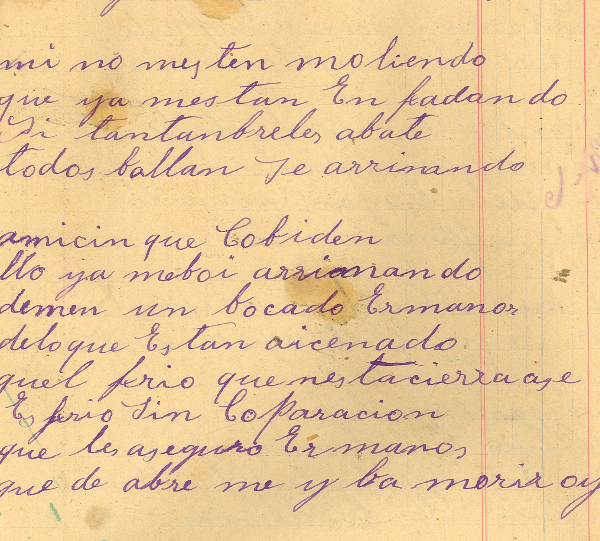 mi no mesten moliendo
que ya mestan Enfadando
Si tantanbreles abate
todos ballan Se arrinando
amicin que Cobiden
llo ya meboi arrianando
demen un bocado Ermanos
deloque Estan aicenado
quel frio que nestacierra ase
Es frio Sin CoParacion
que les aseguro Ermanos
que de abre me y ba morir oy